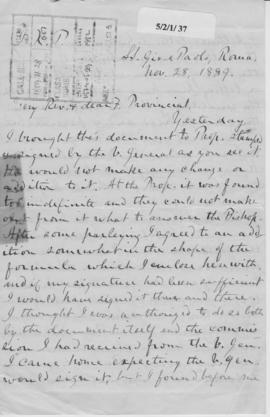 5/2/1/37
SS. Gio. e Paolo, Roma,
Nov. 28, 1889.
my Rev. & dear F. Provincial,
Yesterday
I brought this document to Prop. stamped
& signed by the V. General as you see it.
He would not make any change or
addition to it. At the Prop. it was found
too indefinite and they could not make
out from it what to answer the Bishop.
After some parleying I agreed to an add
ition somewhat in the shape of the
formula which I enclose herewith,
and if my signature had been sufficient
I would have signed it then and there.
I thought I was authorized to do so both
by the document itself and the commis
sion I had received from the V. Gen.
I came home expecting the V. Gen.
would sign it, but I found before me